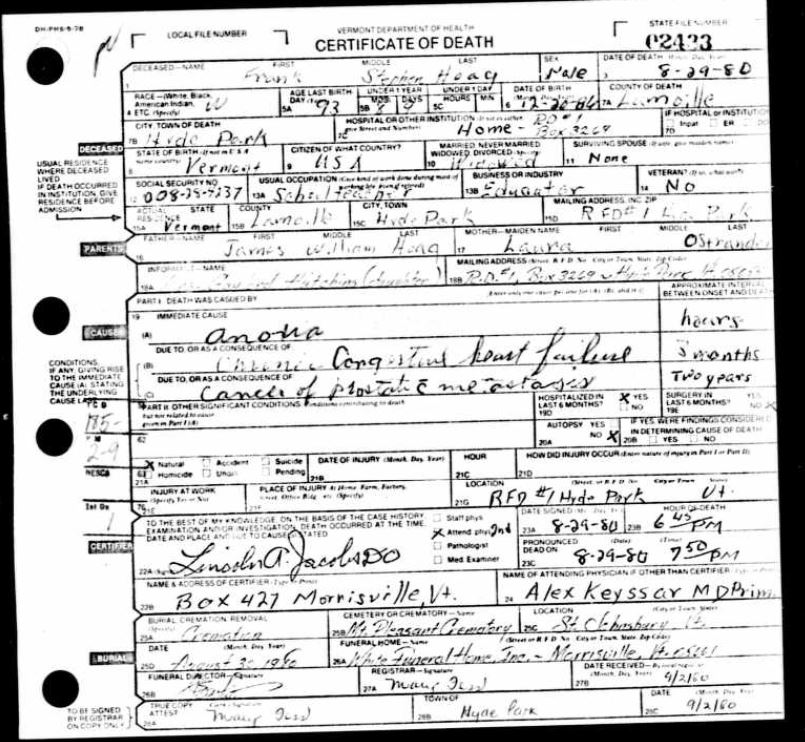 DH-PHS-8-78
LOCAL FILE NUMBER
VERMONT DEPARTMENT OF HEALTH
CERTIFICATE OF DEATH
STATE FILE NUMBER
02433
DECEASED—NAME FIRST MIDDLE LAST SEX DATE OF DEATH
1 Frank Stephen Hoag Male 3 8-29-80
RACE—(White, Black, American Indian, ETC. Specify) AGE LAST BIRTHDAY UNDER 1 YEAR UNDER 1 DAY DATE OF BIRTH COUNTY OF DEATH
4 W 5A 93 5B MOS. DAYS 8 9 5C HOURS MIN 6 12-20-86 7A Lamoille
CITY, TOWN OF DEATH HOSPITAL OR OTHER INSTITUTION IF HOSPITAL OR INSTITUTION
7B Hyde Park 7C Home - RD#1 Box 3269 7D Inpat ER
DECEASED
STATE OF BIRTH CITIZEN OF WHAT COUNTRY? MARRIED, NEVER MARRIED, WIDOWED, DIVORCED SURVIVING SPOUSE
Vermont 9 USA 10 Widowed 11 None
USUAL RESIDENCE WHERE DECEASED LIVED IF DEATH OCCURRED IN INSTITUTION, GIVE RESIDENCE BEFORE ADMISSION
SOCIAL SECURITY NO USUAL OCCUPATION BUSINESS OR INDUSTRY VETERAN?
12 13A School teacher 13B Educator 14 No
ACTUAL RESIDENCE STATE COUNTY CITY, TOWN MAILING ADDRESS, INC. ZIP
15A Vermont Lamoille 15C Hyde Park 15D RFD#1 Park
PARENTS
FATHER—NAME FIRST MIDDLE LAST MOTHER—MAIDEN NAME FIRST MIDDLE LAST
16 James William Hoag 17 Laura Ostrander
INFORMANT—NAME MAILING ADDRESS
18A Hutchins (daughter) 18B R.D.#1, Box 3269 Hyde Park Vt.
PART I. DEATH WAS CAUSED BY APPROXIMATE INTERVAL BETWEEN ONSET AND DEATH
19 IMMEDIATE CAUSE
(A) anoxia hours
CAUSE
DUE TO, OR AS A CONSEQUENCE OF
(B) Chronic Congestive heart failure 3 months
CONDITIONS, IF ANY, GIVING RISE TO THE IMMEDIATE CAUSE (A) STATING THE UNDERLYING CAUSE LAST
DUE TO, OR AS A CONSEQUENCE OF
Cancer of prostate c metastases Two years
PART II OTHER SIGNIFICANT CONDITIONS HOSPITALIZED IN LAST 6 MONTHS? X YES NO 19D SURGERY IN LAST 6 MONTHS? YES NO X 19E
185-
AUTOPSY YES NO X 20A IF YES, WERE FINDINGS CONSIDERED IN DETERMINING CAUSE OF DEATH 20B YES NO
2-9
X Natural Accident Suicide DATE OF INJURY HOUR HOW DID INJURY OCCUR
Homicide Undet. Pending 21A 21B 21C 21D
INJURY AT WORK PLACE OF INJURY LOCATION
21G RFD #1 Hyde Park Vt.
CERTIFIER
TO THE BEST OF MY KNOWLEDGE, ON THE BASIS OF THE CASE HISTORY, EXAMINATION, AND/OR INVESTIGATION, DEATH OCCURRED AT THE TIME, DATE AND PLACE AND DUE TO CAUSE(S) STATED
Staff phys
X Attend phys 2nd
Pathologist
Med Examiner
DATE SIGNED HOUR OF DEATH
23A 8-29-80 23B 6 45 PM
PRONOUNCED DEAD ON
23C 8-29-80 7 50 PM
22A Lincoln A. Jacobs DO
NAME & ADDRESS OF CERTIFIER NAME OF ATTENDING PHYSICIAN IF OTHER THAN CERTIFIER
22B Box 427 Morrisville, Vt. 24 Alex Keyssar MD Prim
BURIAL, CREMATION, REMOVAL CEMETERY OR CREMATORY—Name LOCATION
25A Cremation 25B Mt. Pleasant Crematory 25C St. Johnsbury Vt.
DATE FUNERAL HOME—Name
25D August 30 1980 26A White Funeral Home, Inc. - Morrisville, Vt. 05661
BURIAL
FUNERAL DIRECTOR—Signature REGISTRAR—Signature DATE RECEIVED
26B 27A 27B 9/2/80
TO BE SIGNED BY REGISTRAR ON COPY ONLY
TRUE COPY ATTEST TOWN OF DATE
28A 28B Hyde Park 28C 9/2/80